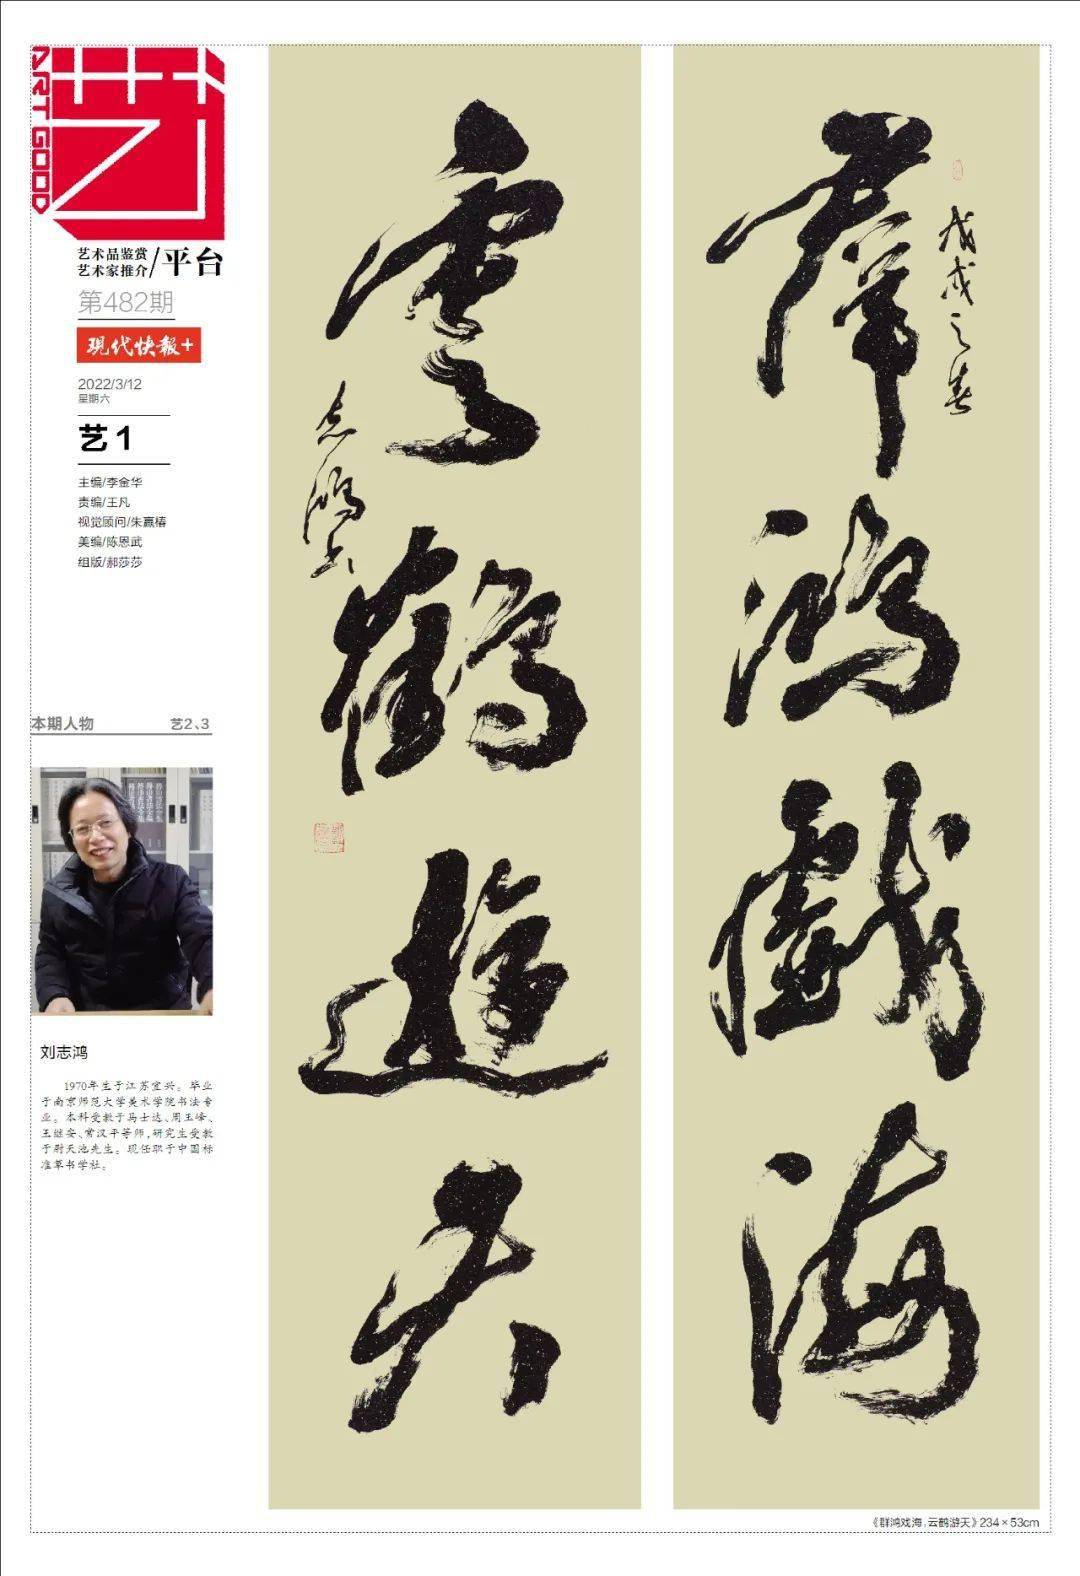 艺
ART GOOD
艺术品鉴赏
艺术家推介/平台
第482期
现代快報+
2022/3/12
星期六
艺1
主编/李金华
责编/王凡
视觉顾问/朱赢椿
美编/陈恩武
组版/郝莎莎
本期人物 艺2、3
刘志鸿
1970年生于江苏宜兴。毕业
于南京师范大学美术学院书法专
业。本科受教于马士达、周玉峰、
王继安、常汉平等师,研究生受教
于尉天池先生。现任职于中国标
准草书学社。
戊戌之春
群鸿戲海
雲鶴遊天
志鸿书
《群鸿戏海,云鹤游天》234×53cm